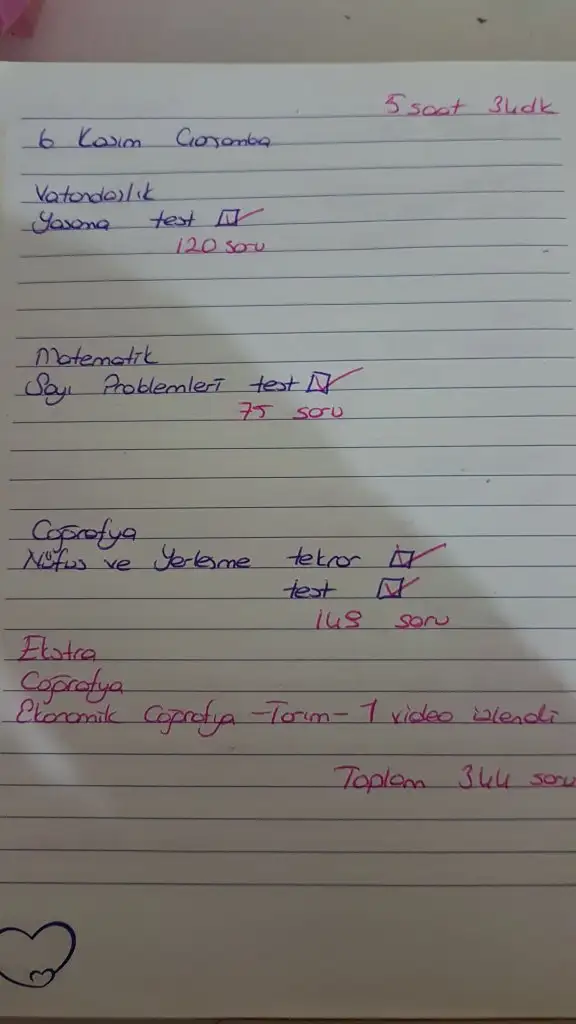 5 saat 34dk
6 Kasım Çarşamba
Vatandaşlık
Yasama test
120 soru
Matematik
Sayı Problemleri test
75 soru
Coğrafya
Nüfus ve Yerleşme tekrar
test
149 soru
Ekstra
Coğrafya
Ekonomik Coğrafya -Tarım- 1 video izlendi
Toplam 344 soru